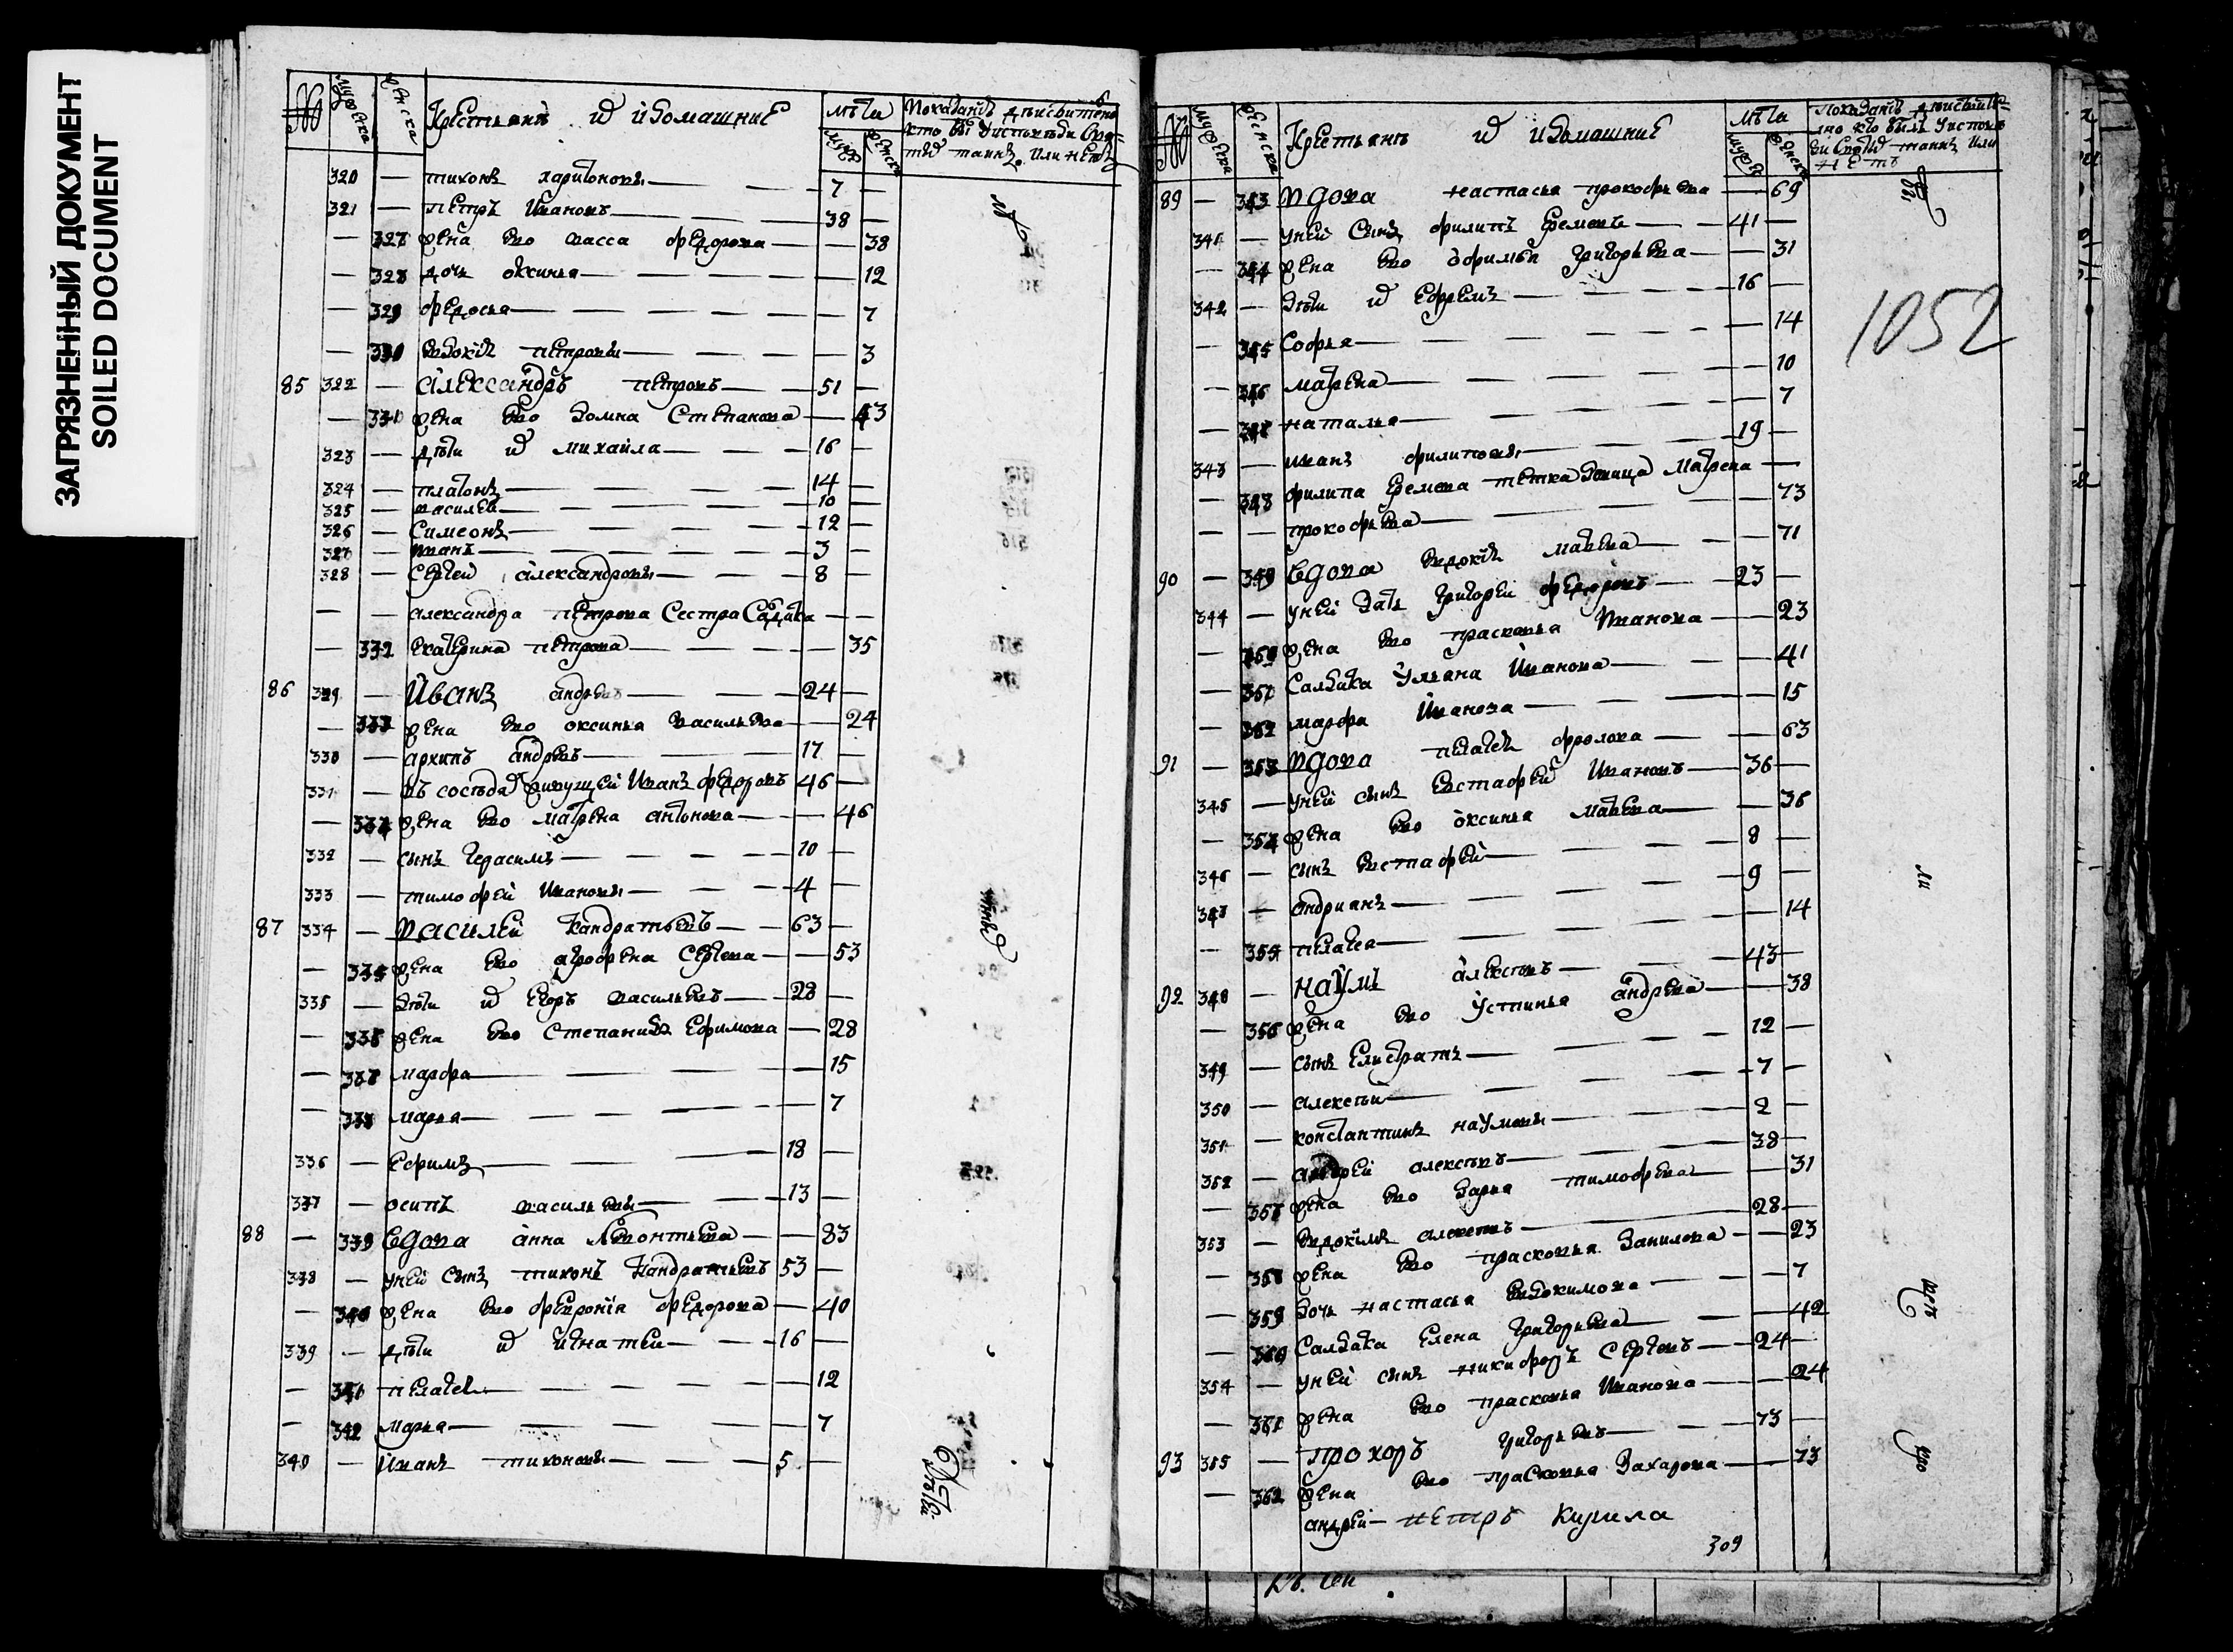 ЗАГРЯЗНЕННЫЙ ДОКУМЕНТ
SOILED DOCUMENT
№ мужеска женска Крестьянъ и ихъ домашние лѣта
мужеска женска
320 — тихонъ харитоновы — 7 —
321 — петръ Ивановъ — 38 —
— 327 жена ево васса федорова — — 38
— 328 дочь оксинья — — 12
— 329 федосья — — 7
— 330 евдокія петровы — — 3
85 322 — александръ петровъ — 51 —
— 331 жена ево домна Степанова — 43
323 — дѣти их михаила — 16 —
324 — платонъ — 14 —
325 — василей — 10 —
326 — Симеонъ — 12 —
327 — иванъ — 3 —
328 — Сергей александровы — 8 —
— — александра петрова Сестра Салдатка — —
— 332 екатерина петрова — — 35
86 329 — Иванъ андреевъ — 24 —
— 333 жена ево оксинья васильева — 24
330 — архипъ андреевъ — 17 —
331 — въ соседах живущей Иванъ федоровъ 46 —
— 334 жена ево матрена антонова — — 46
332 — сынъ герасимъ — 10 —
333 — тимофей Ивановы — 4 —
87 334 — василей кандратьевъ — 63 —
— 335 жена ево агрофена Сергеева — 53
335 — дѣти их егоръ васильевъ — 28 —
— 336 жена ево Степанида ефимова — 28
— 337 марфа — — 15
— 338 марья — — 7
336 — ефимъ — 18 —
337 — осипъ васильевы — 13 —
88 — 339 вдова анна леонтьева — 83
338 — у ней сынъ тихонъ кандратьевъ 53 —
— 340 жена ево февронія федорова — 40
339 — дѣти их игнатей — 16 —
— 341 пелагея — — 12
— 342 марья — — 7
340 — Иванъ тихоновы — 5 —
№ мужеска женска Крестьянъ и ихъ домашние лѣта
мужеска женска
89 — 343 вдова настасья прокофьева — 69
341 — у ней сынъ филипъ еремеевъ — 41 —
— 344 жена ево афимья григорьева — 31
342 — дѣти их ефремъ — 16 —
— 345 Софья — — 14
— 346 матрена — — 10
— 347 наталья — — 7
343 — иванъ филиповы — 19 —
— 348 филипа еремеева тетка девица матрена —
— — прокофьева — — 73
90 — 349 вдова евдокія матвеева — — 71
344 — у ней зать григорей федоровъ — 23 —
— 350 жена ево прасковья Иванова — 23
— 351 Салдатка ульяна Иванова — — 41
— 352 марфа Иванова — — 15
91 — 353 вдова пелагея фролова — — 63
345 — у ней сынъ евстафей Ивановъ — 36 —
— 354 жена ево оксинья матвеева — 36
346 — сынъ евстафей — 8 —
347 — андрианъ — 9 —
— 355 пелагея — — 14
92 348 — наумъ алексѣевъ — 43 —
— 356 жена ево устинья андреева — 38
349 — сынъ елистратъ — 12 —
350 — алексѣй — 7 —
351 — константинъ наумовы — 2 —
352 — андрей алексѣевъ — 38 —
— 357 жена ево дарья тимофеева — 31
353 — евдокімъ алексѣевъ — 28 —
— 358 жена ево прасковья данилова — 23
— 359 дочь настасья евдокимова — 7
— 360 Салдатка елена григорьева — 42
354 — у ней сынъ никифоръ Сергеевъ — 24 —
— 361 жена ево прасковья Иванова — 24
93 355 — прохоръ григорьевъ — 73 —
— 362 жена ево прасковья захарова — 73
андрей — петръ кирила
309
1052